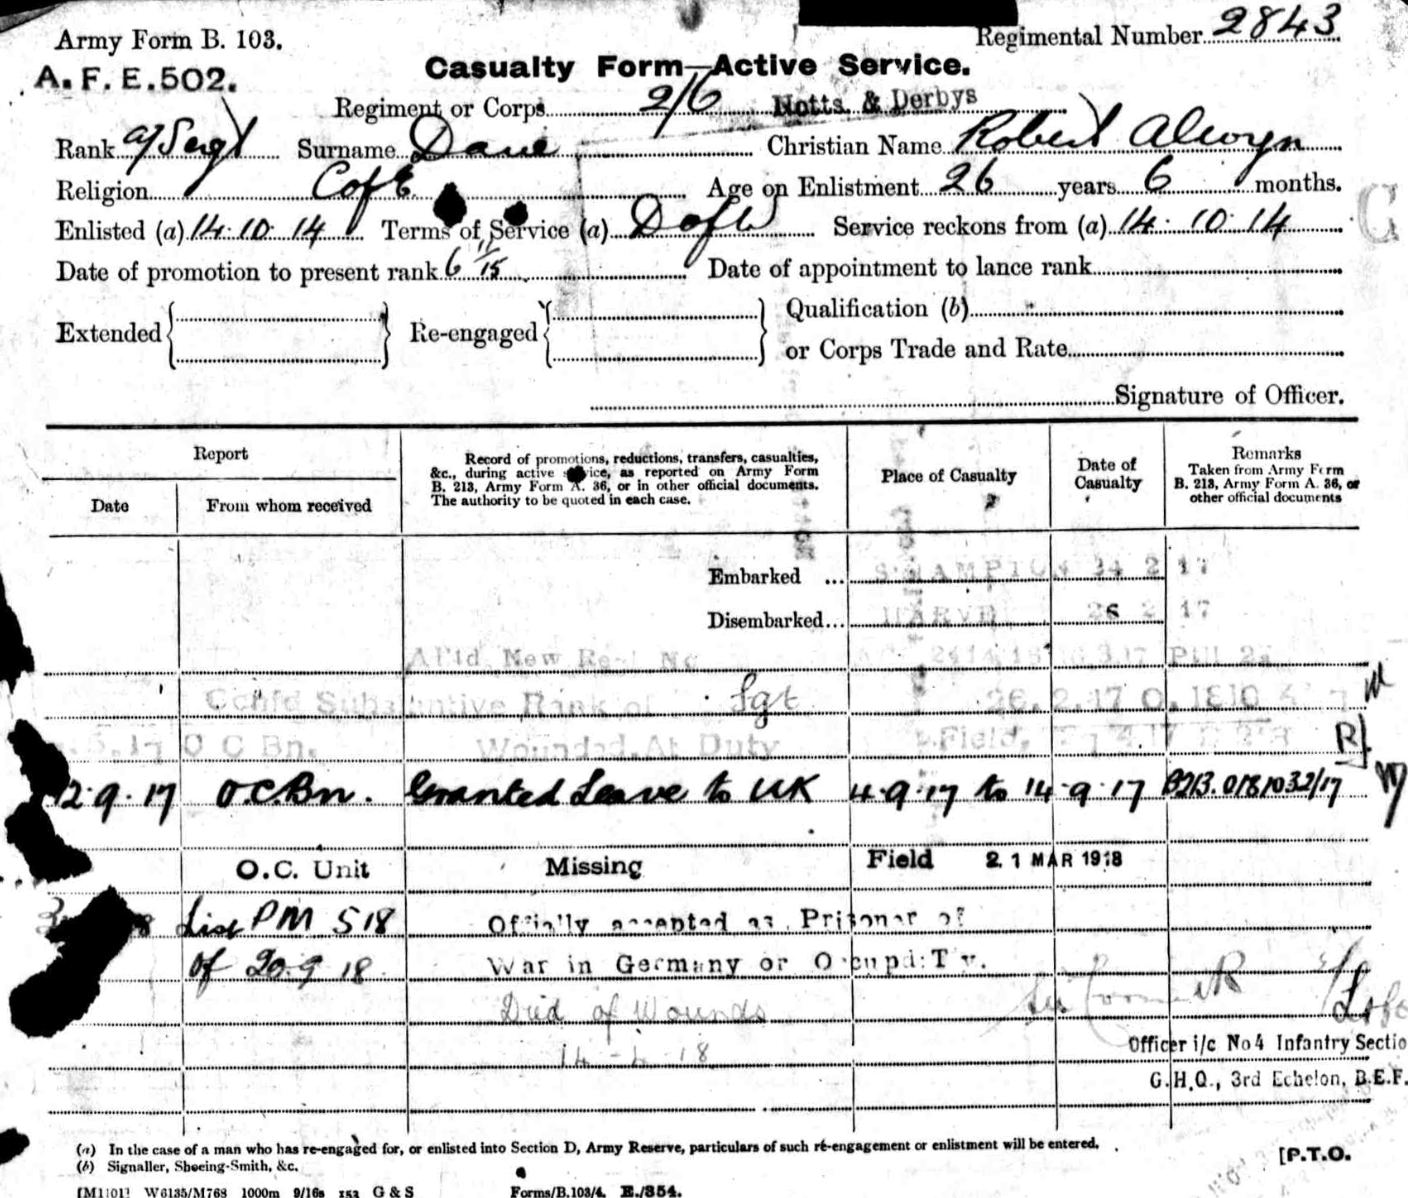 Army Form B. 103.
Regimental Number 2843
A. F. E. 502.
Casualty Form—Active Service.
Regiment or Corps 2/6 Notts. & Derbys
Rank a/Sergt Surname Dane Christian Name Robert Alwyn
Religion C of E. Age on Enlistment 26 years 6 months.
Enlisted (a) 14.10.14 Terms of Service (a) D of W Service reckons from (a) 14.10.14
Date of promotion to present rank 6/11/15 Date of appointment to lance rank
Extended Re-engaged Qualification (b)
or Corps Trade and Rate
Signature of Officer.
Report
Date From whom received
Record of promotions, reductions, transfers, casualties, &c., during active service, as reported on Army Form B. 213, Army Form A. 36, or in other official documents. The authority to be quoted in each case.
Place of Casualty
Date of Casualty
Remarks
Taken from Army Form B. 213, Army Form A. 36, or other official documents
Embarked ... S'HAMPTON 24 2 17
Disembarked... HARVE 26 2 17
All'td New Regl No
Conf'd Substantive Rank of Sgt 26.2.17 O.1810
5.17 O C Bn. Wounded. At Duty Field,
12.9.17 O.C.Bn. Granted Leave to UK 4.9.17 to 14.9.17 B213. 018/1032/17
O.C. Unit Missing Field 21 MAR 1918
List PM 518 Officially accepted as Prisoner of
of 20.9.18 War in Germany or Occupd: Ty.
Died of Wounds
14-4-18
Officer i/c No 4 Infantry Sectio
G.H.Q., 3rd Echelon, B.E.F.
(a) In the case of a man who has re-engaged for, or enlisted into Section D, Army Reserve, particulars of such re-engagement or enlistment will be entered.
(b) Signaller, Shoeing-Smith, &c.
[P.T.O.
[M1101] W6135/M763 1000m 9/16s 153 G & S Forms/B.103/4. E./354.